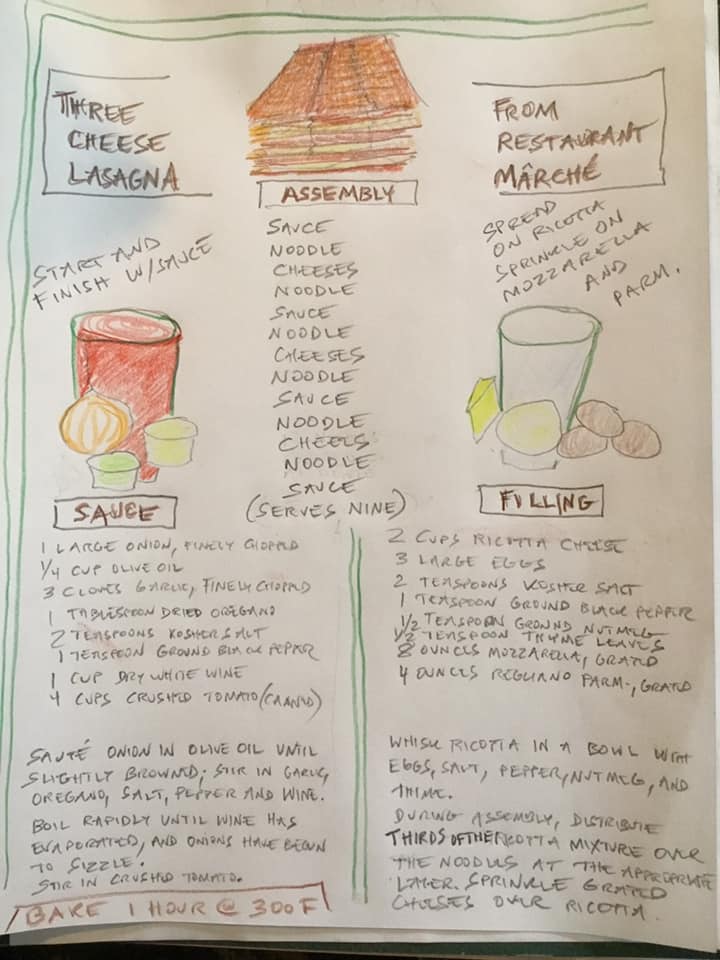 THREE
CHEESE
LASAGNA
FROM
RESTAURANT
MÂRCHÉ
ASSEMBLY
START AND
FINISH W/SAUCE
SAUCE
NOODLE
CHEESES
NOODLE
SAUCE
NOODLE
CHEESES
NOODLE
SAUCE
NOODLE
CHEELS
NOODLE
SAUCE
(SERVES NINE)
SPREAD
ON RICOTTA
SPRINKLE ON
MOZZARELLA
AND
PARM.
SAUCE
1 LARGE ONION, FINELY CHOPPED
1/4 CUP OLIVE OIL
3 CLOVES GARLIC, FINELY CHOPPED
1 TABLESPOON DRIED OREGANO
2 TEASPOONS KOSHER SALT
1 TEASPOON GROUND BLACK PEPPER
1 CUP DRY WHITE WINE
4 CUPS CRUSHED TOMATO (CANNED)
SAUTÉ ONION IN OLIVE OIL UNTIL
SLIGHTLY BROWNED; STIR IN GARLIC,
OREGANO, SALT, PEPPER AND WINE.
BOIL RAPIDLY UNTIL WINE HAS
EVAPORATED, AND ONIONS HAVE BEGUN
TO SIZZLE.
STIR IN CRUSHED TOMATO.
BAKE 1 HOUR @ 300F
FILLING
2 CUPS RICOTTA CHEESE
3 LARGE EGGS
2 TEASPOONS KOSHER SALT
1 TEASPOON GROUND BLACK PEPPER
1/2 TEASPOON GROUND NUTMEG
1/2 TEASPOON THYME LEAVES
8 OUNCES MOZZARELLA, GRATED
4 OUNCES REGLIANO PARM., GRATED
WHISK RICOTTA IN A BOWL WITH
EGGS, SALT, PEPPER, NUTMEG, AND
THYME.
DURING ASSEMBLY, DISTRIBUTE
THIRDS OF THE RICOTTA MIXTURE OVER
THE NOODLES AT THE APPROPRIATE
LAYER. SPRINKLE GRATED
CHEESES OVER RICOTTA.